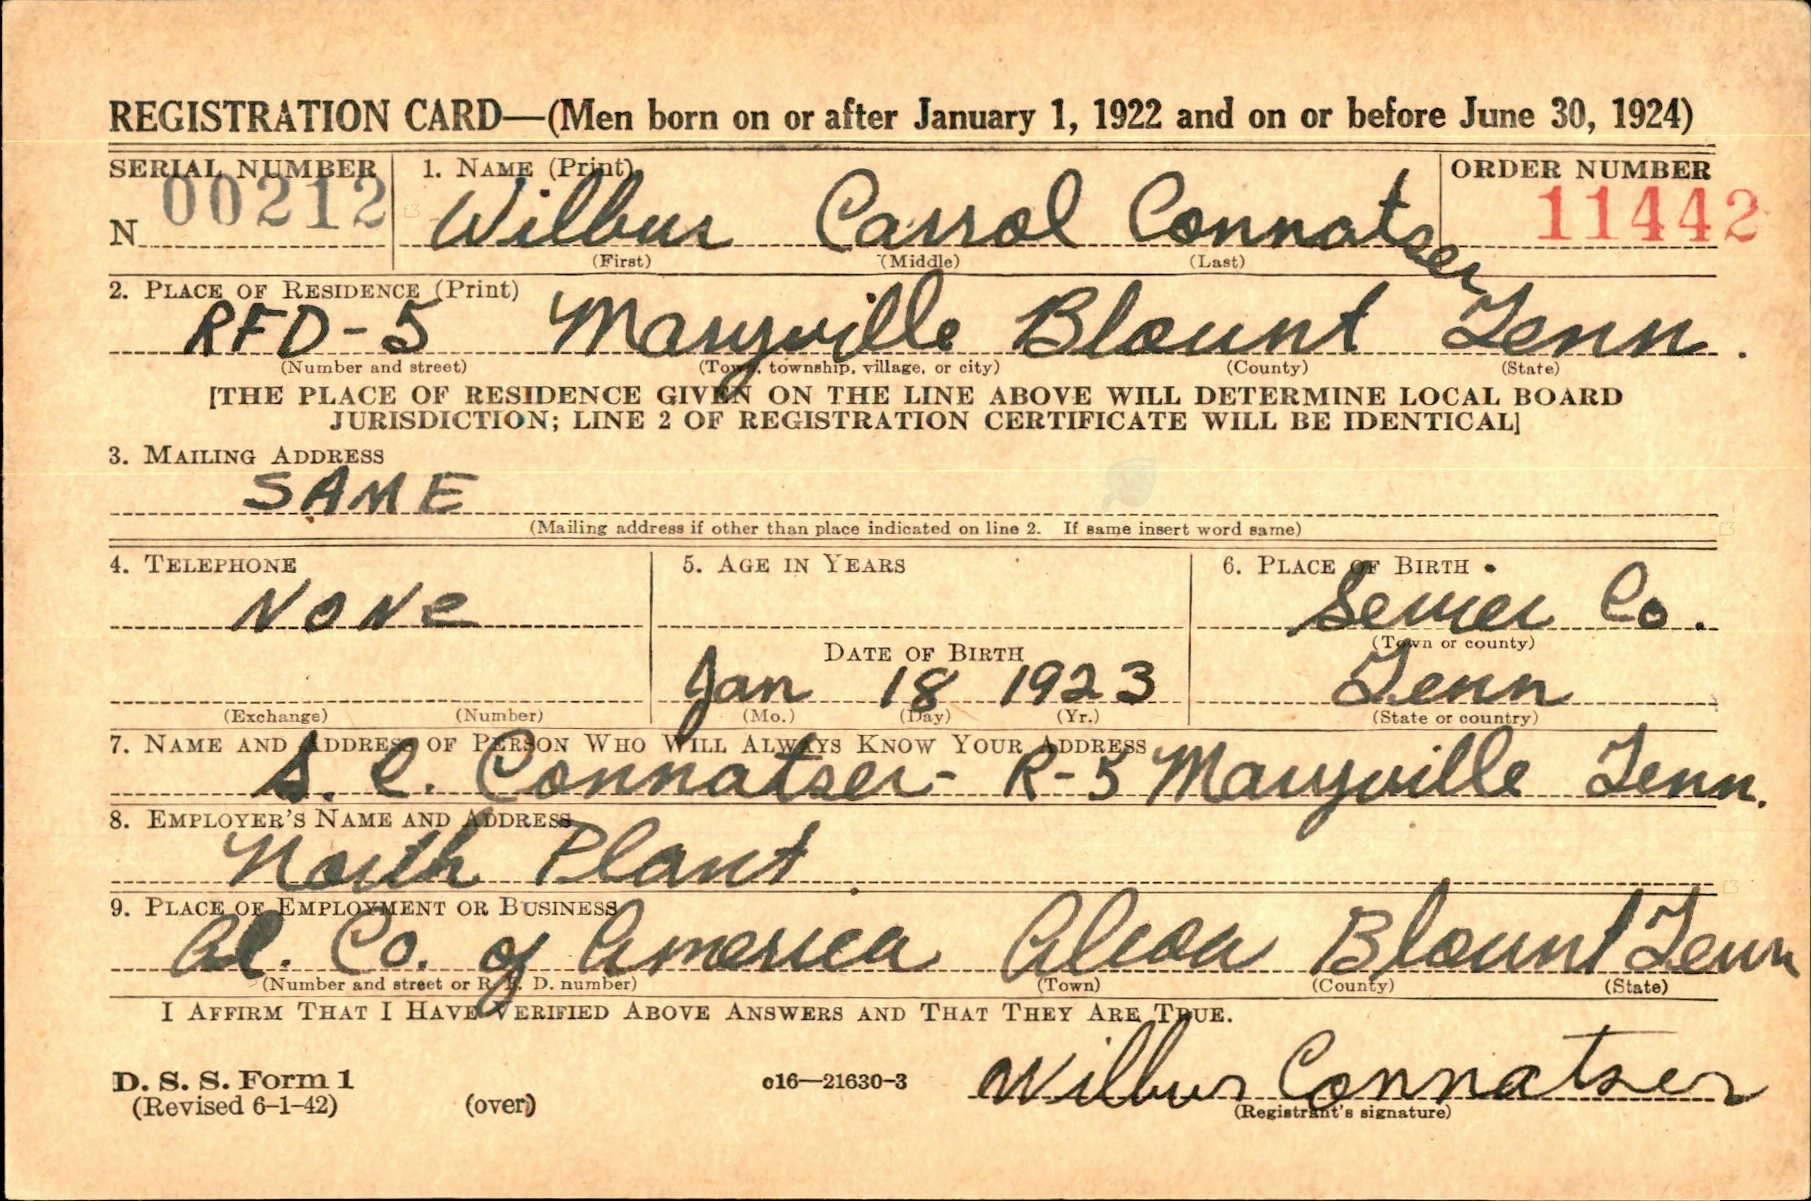 REGISTRATION CARD—(Men born on or after January 1, 1922 and on or before June 30, 1924)
SERIAL NUMBER 1. NAME (Print) ORDER NUMBER
N 00212 Wilbur Carrol Connatser 11442
(First) (Middle) (Last)
2. PLACE OF RESIDENCE (Print)
RFD-5 Maryville Blount Tenn.
(Number and street) (Town, township, village, or city) (County) (State)
[THE PLACE OF RESIDENCE GIVEN ON THE LINE ABOVE WILL DETERMINE LOCAL BOARD
JURISDICTION; LINE 2 OF REGISTRATION CERTIFICATE WILL BE IDENTICAL]
3. MAILING ADDRESS
SAME
(Mailing address if other than place indicated on line 2. If same insert word same)
4. TELEPHONE 5. AGE IN YEARS 6. PLACE OF BIRTH
NONe Sevier Co.
(Town or county)
DATE OF BIRTH
Jan 18 1923 Tenn
(Exchange) (Number) (Mo.) (Day) (Yr.) (State or country)
7. NAME AND ADDRESS OF PERSON WHO WILL ALWAYS KNOW YOUR ADDRESS
S. C. Connatser - R-5 Maryville Tenn.
8. EMPLOYER'S NAME AND ADDRESS
North Plant
9. PLACE OF EMPLOYMENT OR BUSINESS
Al. Co. of America Alcoa Blount Tenn
(Number and street or R. F. D. number) (Town) (County) (State)
I AFFIRM THAT I HAVE VERIFIED ABOVE ANSWERS AND THAT THEY ARE TRUE.
D. S. S. Form 1
(Revised 6-1-42) (over) c16—21630-3 Wilbur Connatser
(Registrant's signature)